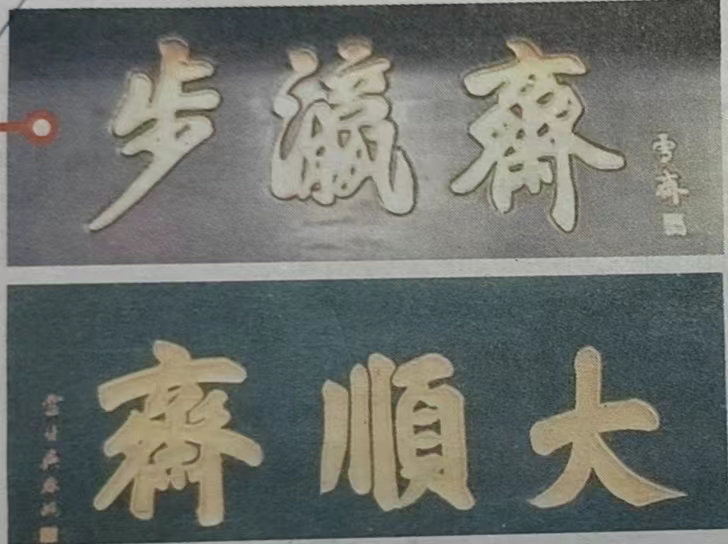 步瀛齋
雪齋
大順齋